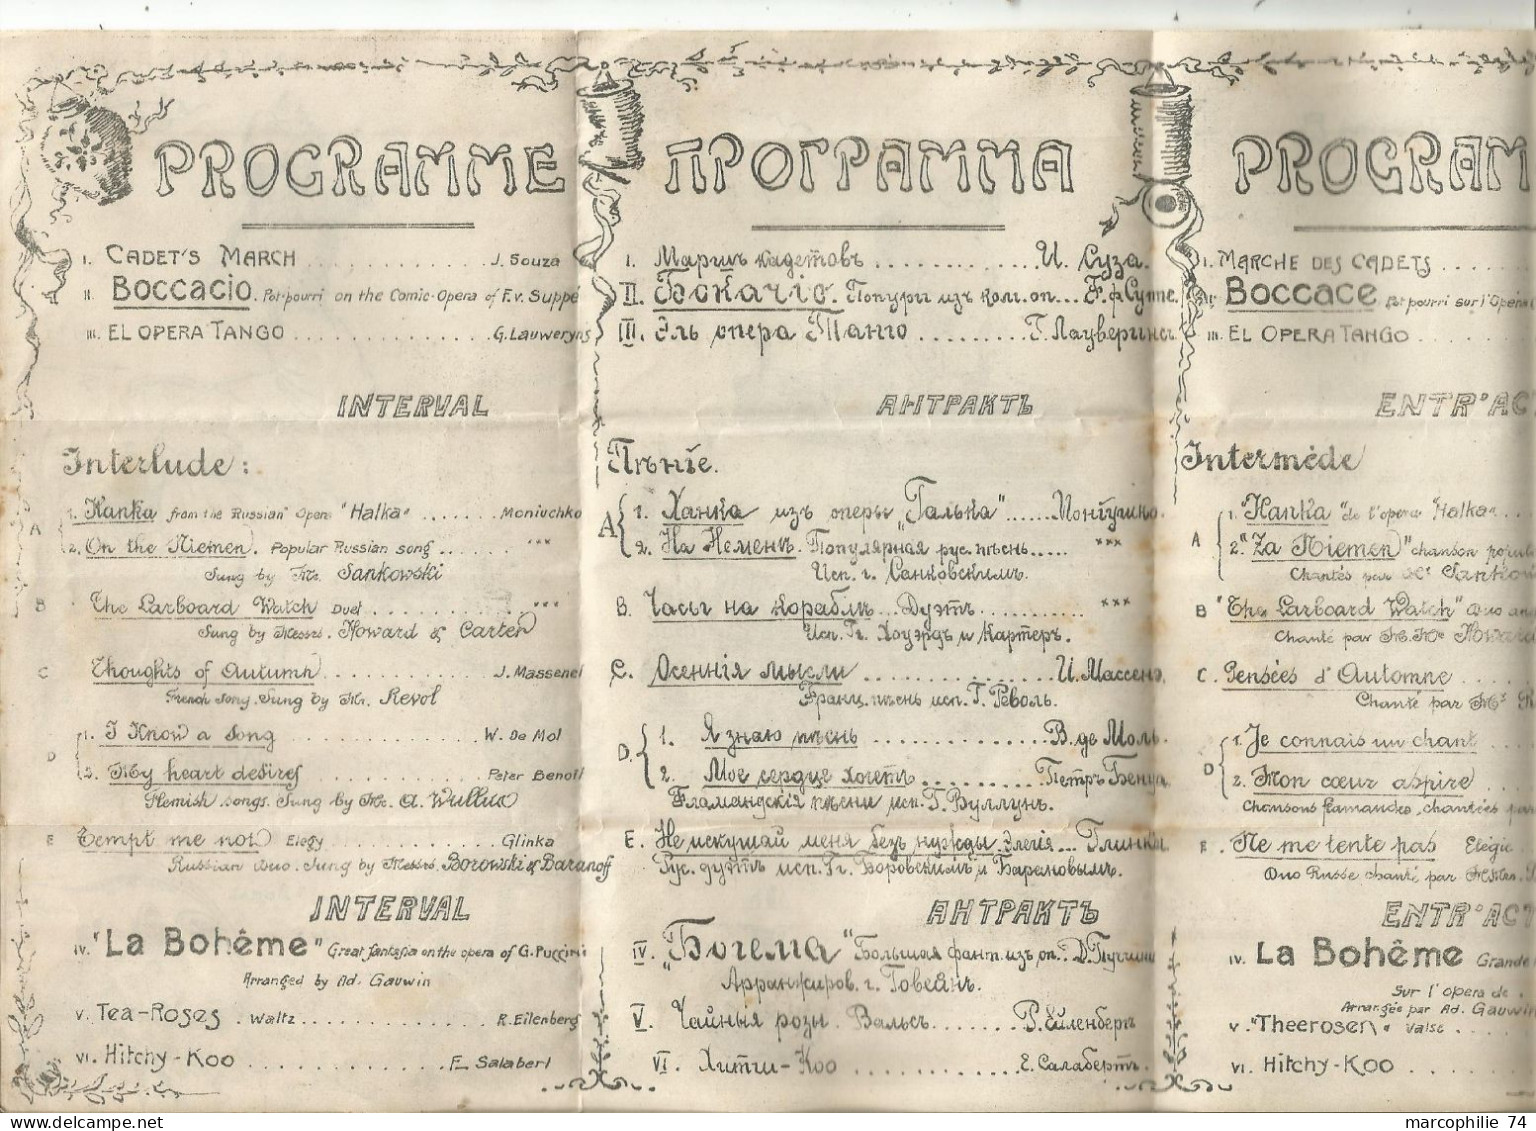 PROGRAMME
I. CADET'S MARCH ............. J. Souza
II. Boccacio. Pot-pourri on the Comic-Opera of F.v. Suppé
III. EL OPERA TANGO ............. G. Lauweryns
INTERVAL
Interlude:
A 1. Hanka from the Russian Opera "Halka" ....... Moniuchko
2. On the Niemen. Popular Russian song ...... ***
Sung by Mr. Sankowski
B The Larboard Watch Duet ............. ***
Sung by Messrs. Howard & Carter
C Thoughts of Autumn ............. J. Massenet
French song. Sung by Mr. Revol
D 1. I Know a song ............. W. De Mol
2. My heart desires ............. Peter Benoit
Flemish songs. Sung by Mr. A. Wullus
E Tempt me not Elegy ............. Glinka
Russian duo. Sung by Messrs. Borowski & Baranoff
INTERVAL
IV. "La Bohême" Great fantasia on the opera of G. Puccini
Arranged by Ad. Gauwin
V. Tea-Roses. Waltz ............. R. Eilenberg
VI. Hitchy-Koo ............. E. Salabert
ПРОГРАММА
I. Маршъ кадетовъ ............. И. Суза.
II. Бокачіо. Попури изъ ком. оп... Ф. ф Суппе.
III. Эль опера Танго ......... Г. Лауверинсъ
АНТРАКТЪ
Пѣніе.
А 1. Ханка изъ оперы „Галька" ......
2. На Неменѣ. Популярная рус. пѣснь ..... ***
Исп. г. Санковскимъ.
B. Часы на кораблѣ... Дуэтъ ........... ***
Исп. Гг. Хоуэрдъ и Картеръ.
C. Осеннія мысли ............. И. Массенэ.
Франц. пѣснь исп. Г. Револь.
D. 1. Я знаю пѣснь ............. В. де Моль.
2. Мое сердце хочетъ ......... Петръ Бенуа
Фламандскія пѣсни исп. Г. Вуллунъ.
E. Не искушай меня безъ нужды. Элегія... Глинки.
Рус. дуэтъ исп. Гг. Боровскимъ и Барановымъ.
АНТРАКТЪ
IV. „Богема" Большая фант. изъ оп. Д. Пуччини
Арранжиров. г. Говеанъ.
V. Чайныя розы. Вальсъ ........ Р. Ейленбергъ
VI. Хитши-Коо ............. Е. Салабертъ.
PROGRAM
I. MARCHE DES CADETS ........
II. Boccace Pot pourri sur l'Opéra
III. EL OPERA TANGO ........
ENTR'AC
Intermède
A 1. Hanka "de l'opera "Halka" ....
2. "Za Niemen" chanson popul
Chantés par Mr Sankow
B "The Larboard Watch" duo an
Chanté par M.M. Howard
C. Pensées d'Automne .....
Chanté par Mr
D 1. Je connais un chant .....
2. Mon cœur aspire .....
Chansons flamandes, chantées par
E. Ne me tente pas Elégie
Duo Russe chanté par
ENTR'ACT
IV. La Bohême Grande
Sur l'opera de .
Arrangée par Ad. Gauwin
V. "Theerosen" Valse .....
VI. Hitchy-Koo .....
marcophilie 74